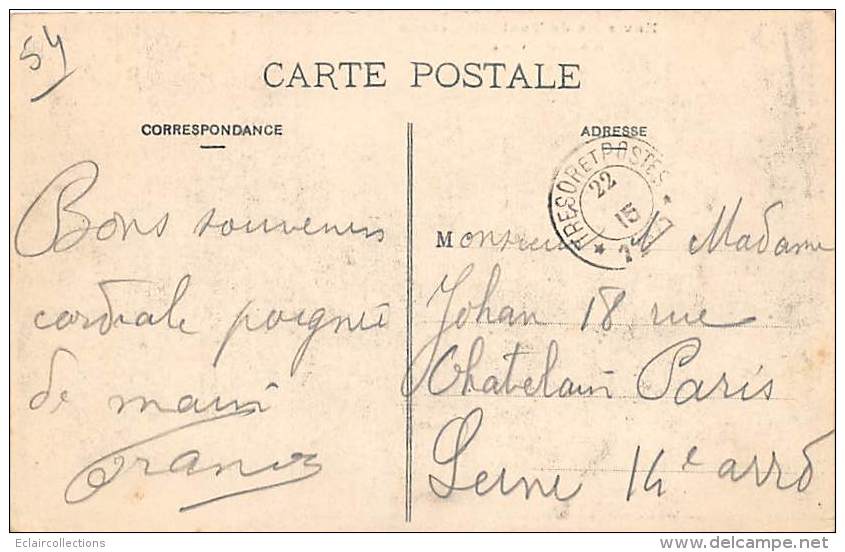 54
CARTE POSTALE
CORRESPONDANCE
ADRESSE
TRESOR ET POSTES
22
15
Bons souvenirs
cordiale poignée
de main
Monsieur & Madame
Johan 18 rue
Chatelain Paris
Seine 14e arrd
Eclaircollections
www.delcampe.net